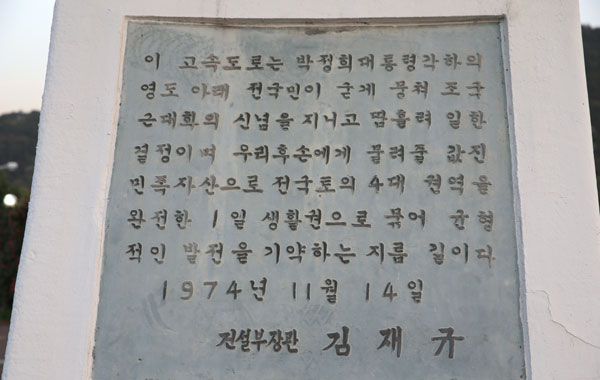 이 고속도로는 박정희대통령각하의
영도 아래 전국민이 굳게 뭉쳐 조국
근대화의 신념을 지니고 땀흘려 일한
결정이며 우리후손에게 물려줄 값진
민족자산으로 전국토의 4대 권역을
완전한 1일 생활권으로 묶어 균형
적인 발전을 기약하는 지름 길이다
1974년 11월 14일
건설부장관 김재규